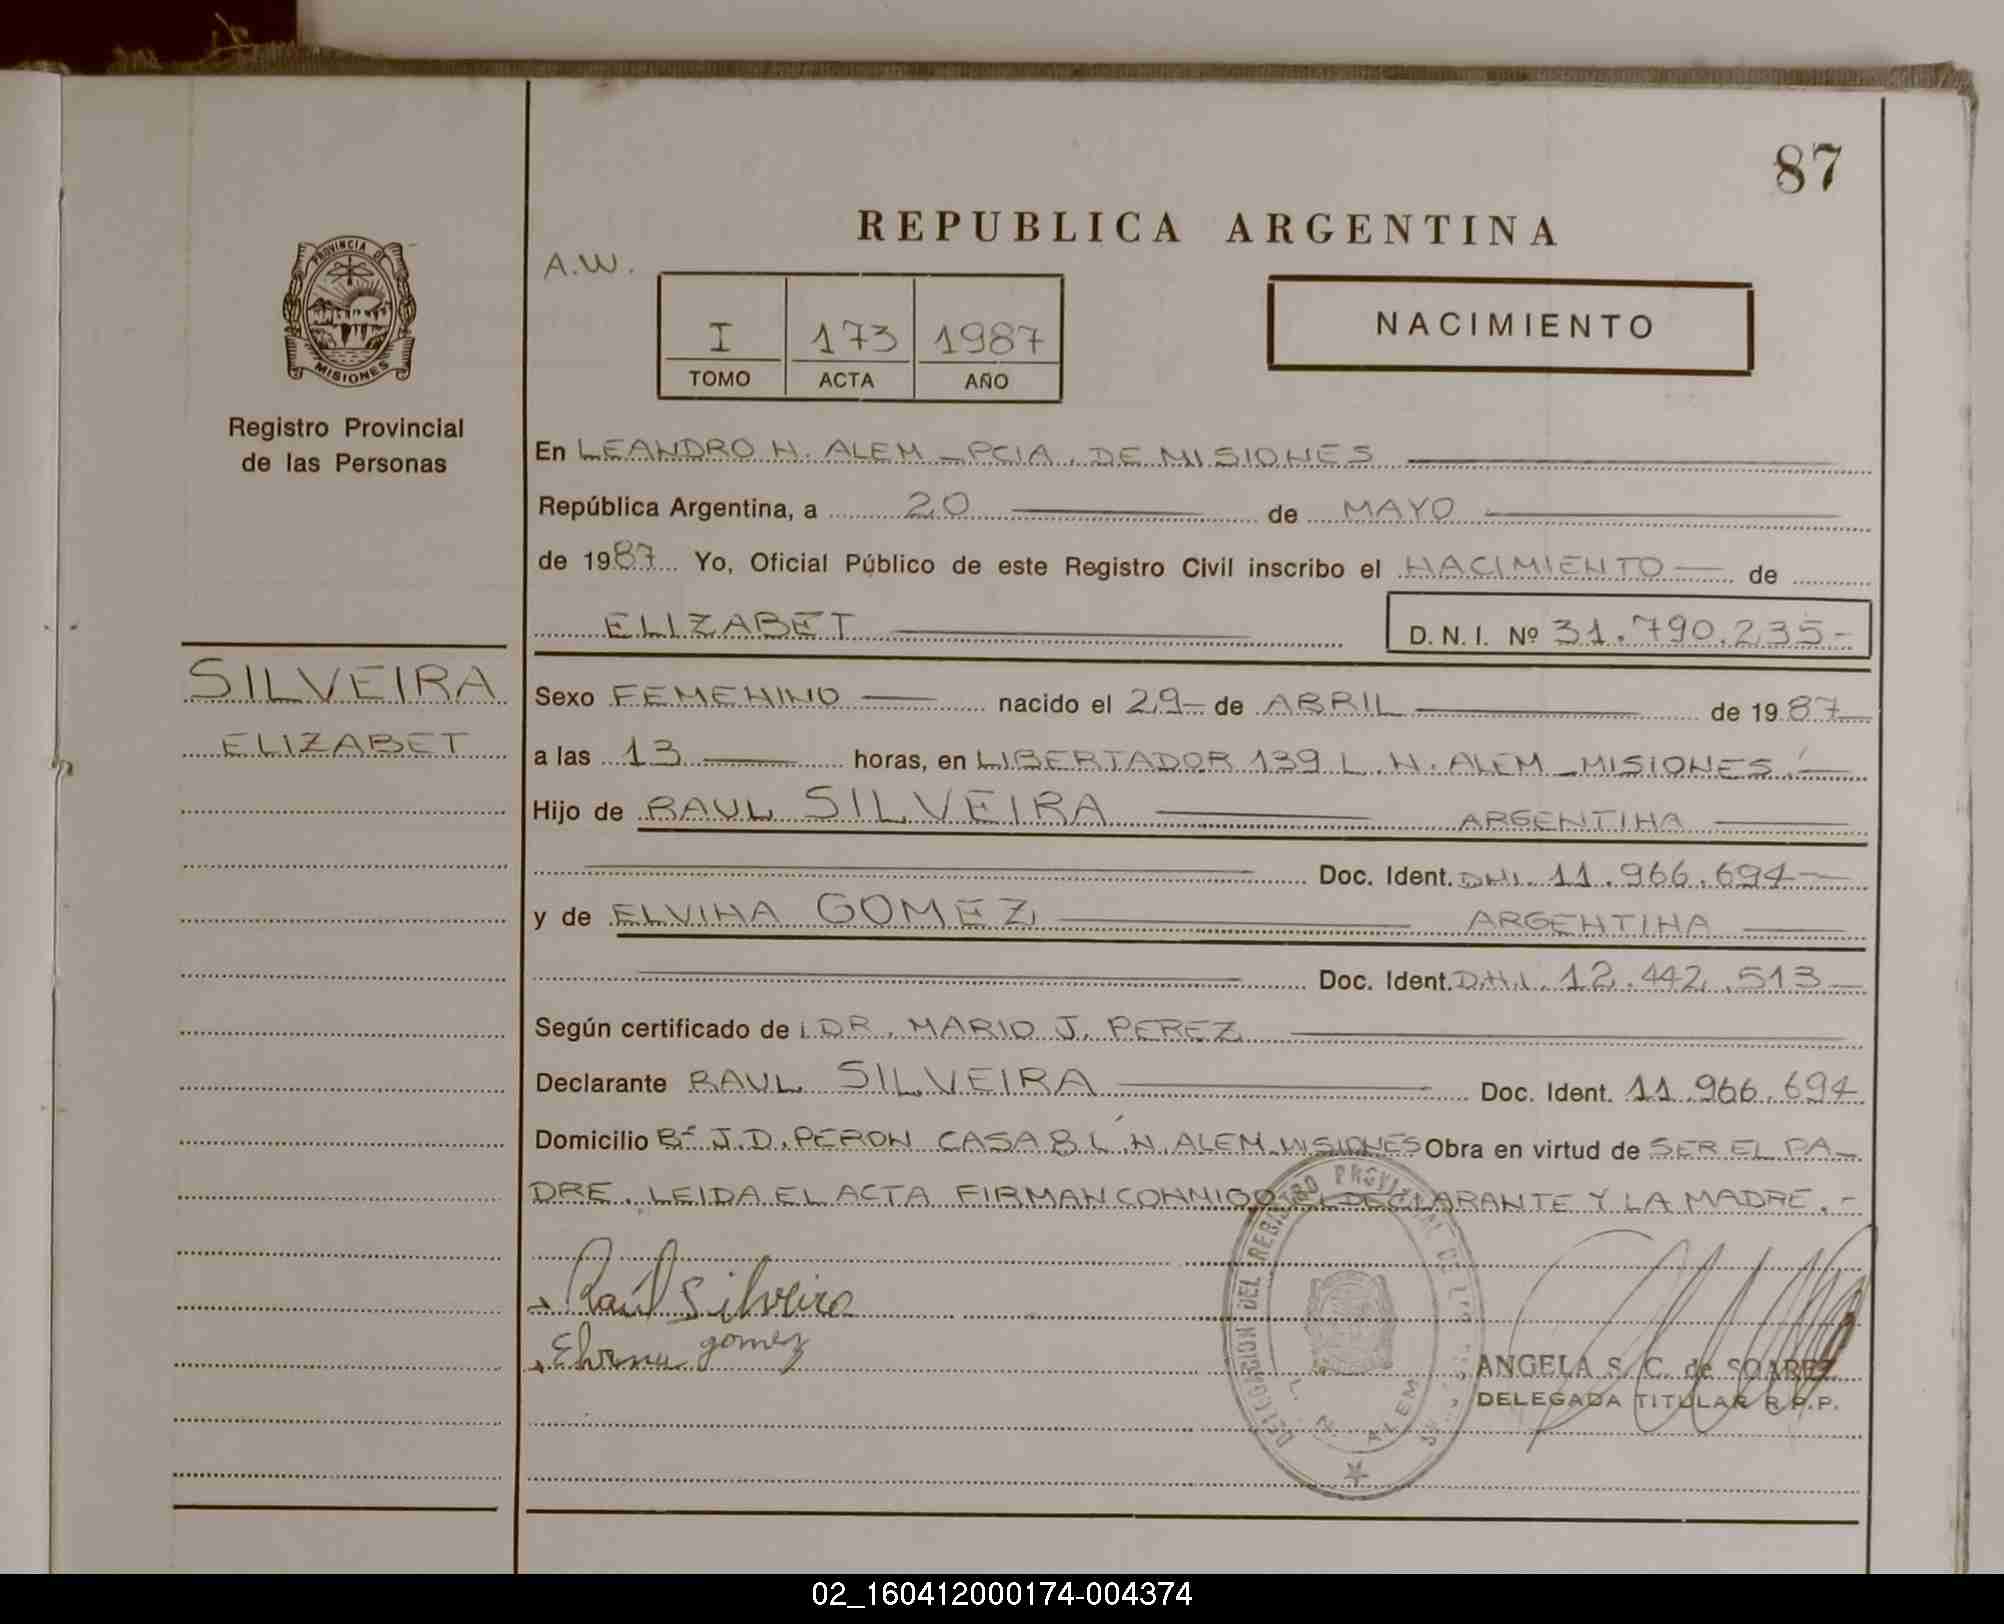 87
REPUBLICA ARGENTINA
A.W.
PROVINCIA DE MISIONES
I 173 1987
TOMO ACTA AÑO
NACIMIENTO
Registro Provincial
de las Personas
En LEANDRO N. ALEM - PCIA. DE MISIONES
República Argentina, a 20 de MAYO
de 1987 Yo, Oficial Público de este Registro Civil inscribo el NACIMIENTO de
ELIZABET D. N. I. Nº 31.790.235-
SILVEIRA
ELIZABET
Sexo FEMENINO nacido el 29 de ABRIL de 1987
a las 13 horas, en LIBERTADOR 139 L. N. ALEM - MISIONES.
Hijo de RAUL SILVEIRA ARGENTINA
Doc. Ident. DNI. 11.966.694
y de ELVINA GOMEZ ARGENTINA
Doc. Ident. D.N.I. 12.442.513
Según certificado de : DR. MARIO J. PEREZ
Declarante RAUL SILVEIRA Doc. Ident. 11.966.694
Domicilio Bº J.D. PERON CASA 8 L. N. ALEM MISIONES Obra en virtud de SER EL PA-
DRE. LEIDA EL ACTA FIRMAN CONMIGO EL DECLARANTE Y LA MADRE.-
Raúl Silveira
Elvina gomez
DELEGACION DEL REGISTRO PROVINCIAL DE
L. N. ALEM
ANGELA S. C. de SOAREZ
DELEGADA TITULAR R.P.P.
02_160412000174-004374